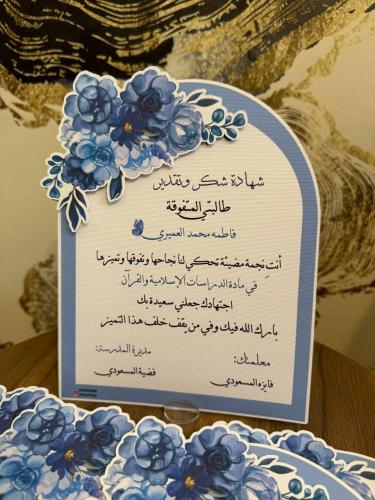 شهادة شكر وتقدير
طالبتي المتفوقة
فاطمه محمد العميري
أنت نجمة مضيئة تحكي لنا نجاحها وتفوقها وتميزها
في مادة الدراسات الإسلامية والقرآن
اجتهادك جعلني سعيدة بك
بارك الله فيك وفي من يقف خلف هذا التميز
معلمتك:
فايزه المسعودي
مديرة المدرسة:
فضية المسعودي